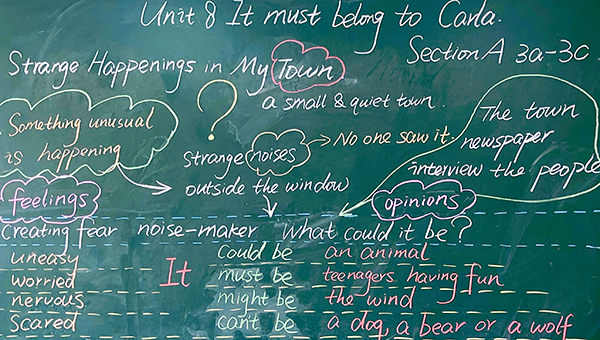 Unit 8 It must belong to Carla.
Section A 3a-3c
Strange Happenings in My Town
a small & quiet town.
Something unusual
is happening
?
Strange noises
outside the window
No one saw it.
The town
newspaper
interview the people
feelings
opinions
Creating fear noise-maker What could it be?
uneasy
worried
nervous
Scared
It
Could be an animal
must be teenagers having fun
might be the wind
can't be a dog, a bear or a wolf